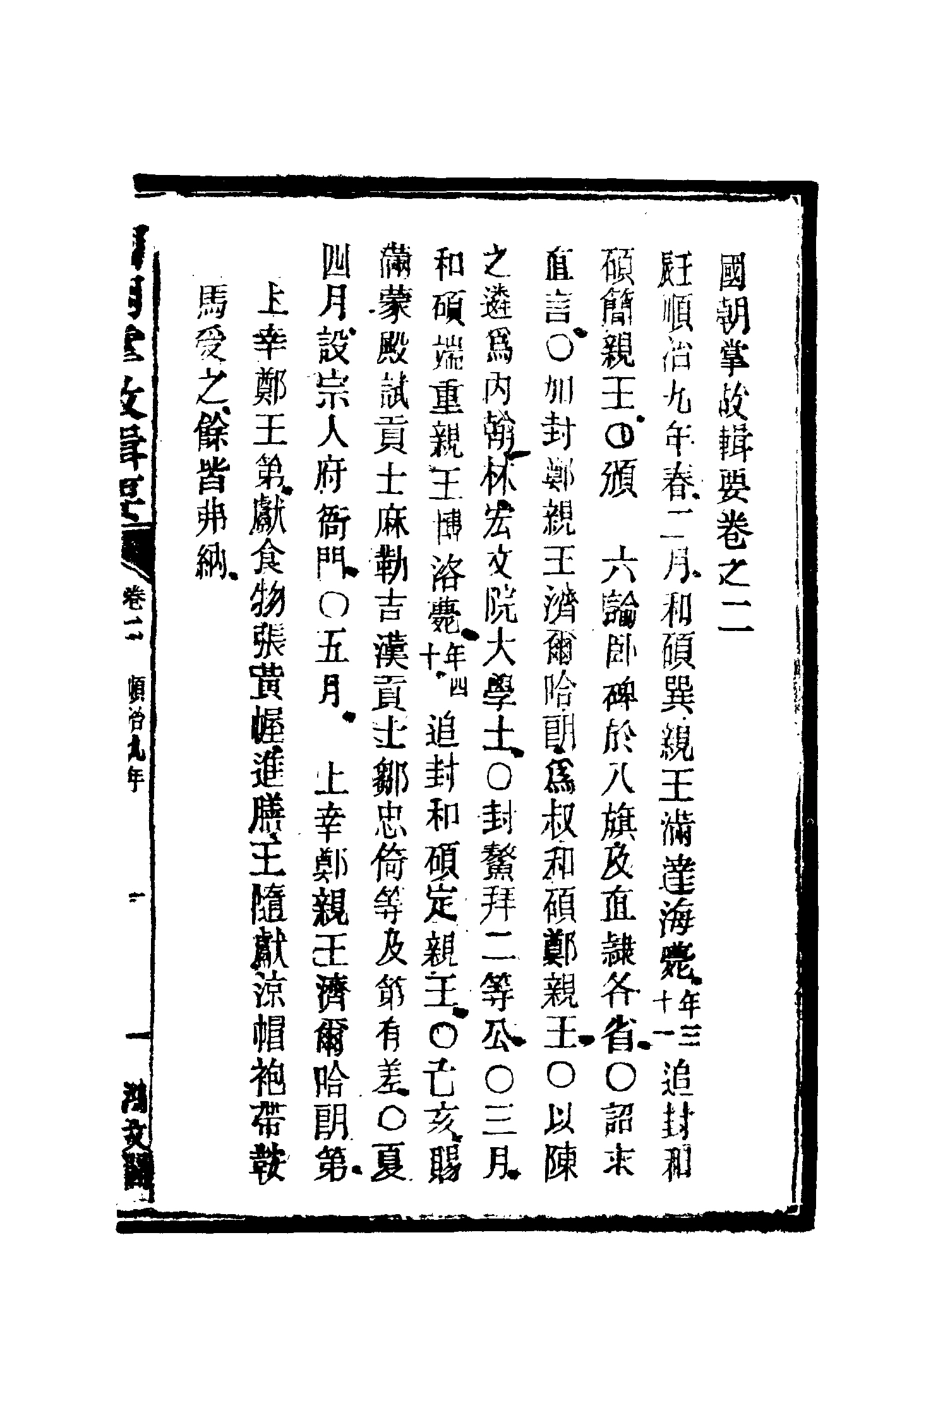 國朝掌故輯要卷之二
壬辰順治九年春二月和碩巽親王滿達海薨年三十一追封和
碩簡親王〇頒 六諭臥碑於八旗及直隸各省〇詔求
直言〇加封鄭親王濟爾哈朗爲叔和碩鄭親王〇以陳
之遴爲內翰林宏文院大學士〇封鰲拜二等公〇三月
和碩端重親王博洛薨年四十追封和碩定親王〇己亥賜
滿蒙殿試貢士麻勒吉漢貢士鄒忠倚等及第有差〇夏
四月設宗人府衙門〇五月 上幸鄭親王濟爾哈朗第
上幸鄭王第獻食物張黃幄進膳王隨獻涼帽袍帶鞍
馬受之餘皆弗納
國朝掌故輯要 卷二 順治九年 一 鴻文閣